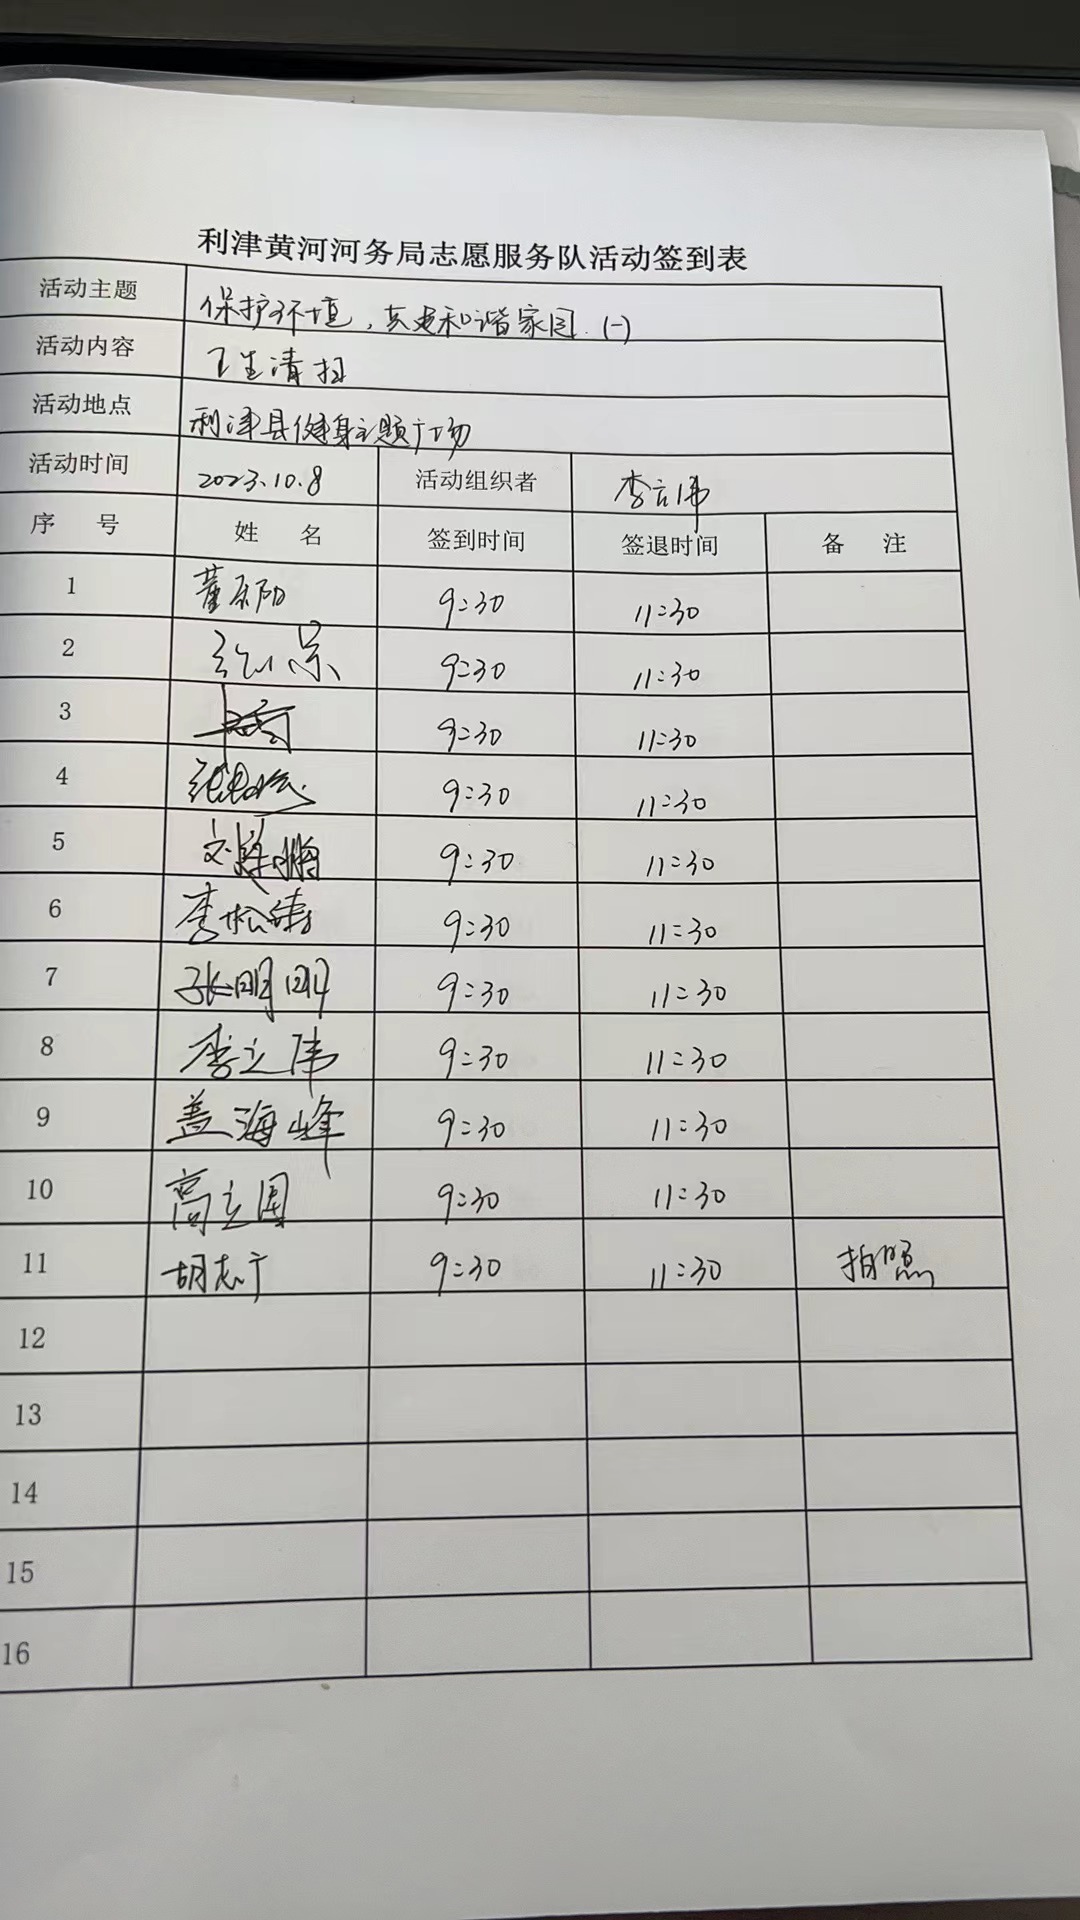 利津黄河河务局志愿服务队活动签到表
活动主题 保护环境，共建和谐家园.(一)
活动内容 卫生清扫
活动地点 利津县健身主题广场
活动时间 2023.10.8 活动组织者 李立伟
序 号 姓 名 签到时间 签退时间 备 注
1 9:30 11:30
2 9:30 11:30
3 9:30 11:30
4 9:30 11:30
5 9:30 11:30
6 李松涛 9:30 11:30
7 张明明 9:30 11:30
8 李立伟 9:30 11:30
9 盖海峰 9:30 11:30
10 高立国 9:30 11:30
11 胡志广 9:30 11:30 拍照
12
13
14
15
16